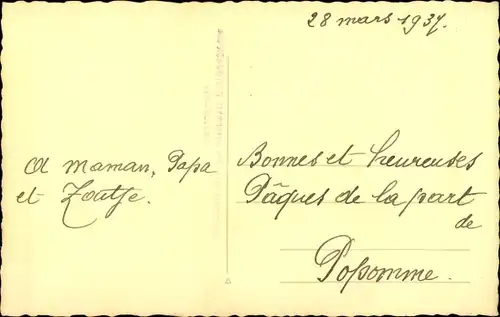 28 mars 1937.
A Maman, Papa
et Zoutje.
Bonnes et heureuses
Pâques de la part
de
Popomme.